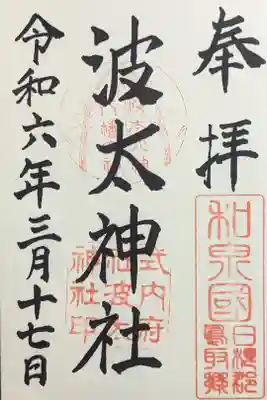 奉拝
和泉國
日根郡
鳥取郷
波太神社
式内府
社波太
神社印
令和六年三月十七日